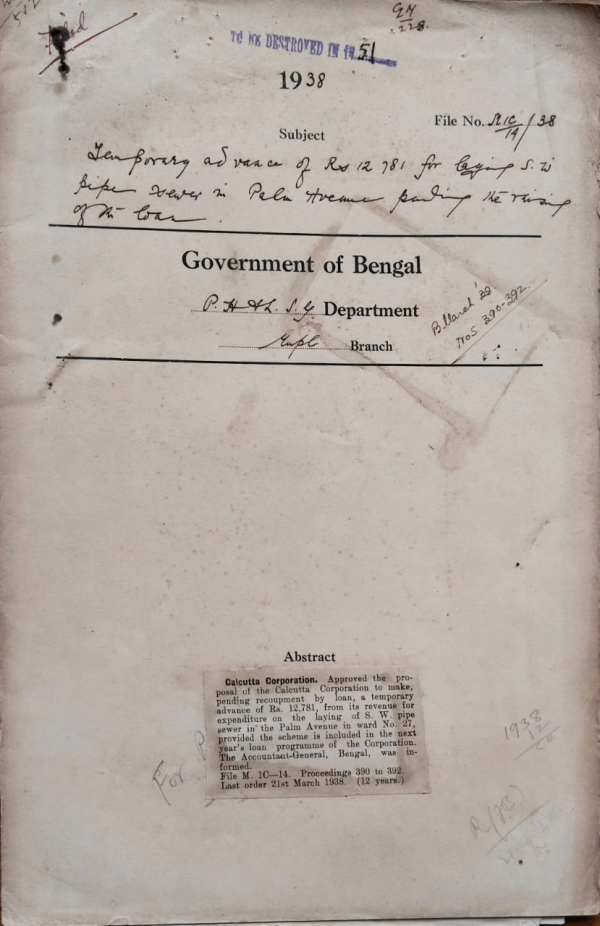 Filed
GM
228
TO BE DESTROYED IN 1951
1938
File No. M1C/14/38
Subject
Temporary advance of Rs 12 781 for laying S. W
pipe sewer in Palm Avenue pending the raising
of the loan.
Government of Bengal
P. H & L. S. G. Department
Branch
B. March '38
Nos 390-392.
Abstract
Calcutta Corporation. Approved the pro-
posal of the Calcutta Corporation to make,
pending recoupment by loan, a temporary
advance of Rs. 12,781, from its revenue for
expenditure on the laying of S. W. pipe
sewer in the Palm Avenue in ward No. 27,
provided the scheme is included in the next
year's loan programme of the Corporation.
The Accountant-General, Bengal, was in-
formed.
File M. 1C—14. Proceedings 390 to 392.
Last order 21st March 1938. (12 years.)
For
1938
12
50